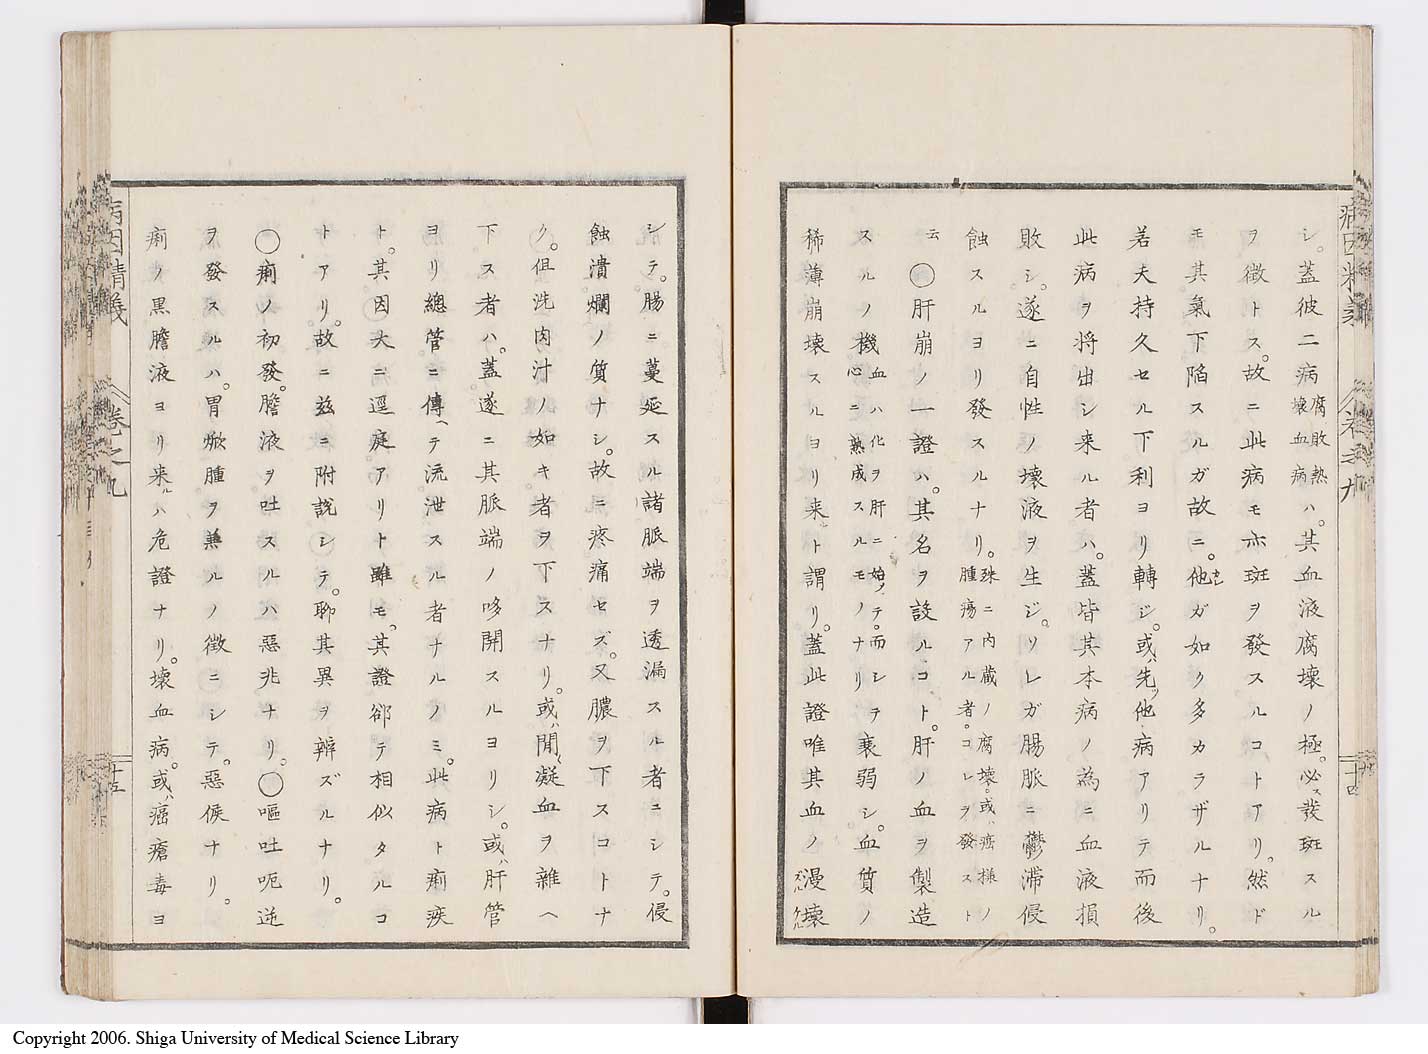 シ。蓋彼二病腐敗熱壊血病ハ。其血液腐壊ノ極。必ス發斑スル
ヲ徴トス。故ニ此病モ亦斑ヲ發スルコトアリ。然ド
モ其氣下陥スルガ故ニ。他ガ如ク多カラザルナリ。
若夫持久セル下利ヨリ轉ジ。或ハ先ツ他病アリテ而後
此病ヲ将出シ来ル者ハ。蓋皆其本病ノ為ニ血液損
敗シ。遂ニ自性ノ壊液ヲ生ジ。ソレガ腸脈ニ鬱滞侵
蝕スルヨリ發スルナリ。殊ニ内蔵ノ腐壊。或ハ癌様ノ腫瘍アル者。コレヲ發スト
云
〇肝崩ノ一證ハ。其名ヲ設ルコト。肝ノ血ヲ製造
スルノ機血ハ化ヲ肝ニ始メテ。而シテ心ニ熟成スルモノナリ衰弱シ。血質ノ
稀薄崩壊スルヨリ来ルト謂リ。蓋此證唯其血ノ漫壊ズルケル
病因精義 巻之九 十四
シテ。腸ニ蔓延スル諸脈端ヲ透漏スル者ニシテ。侵
蝕潰爛ノ質ナシ。故ニ疼痛セズ。又膿ヲ下スコトナ
ク。但洗肉汁ノ如キ者ヲ下スナリ。或ハ間〱凝血ヲ雑ヘ
下ス者ハ。蓋遂ニ其脈端ノ哆開スルヨリシ。或ハ肝管
ヨリ總管ニ傳ヘテ流泄スル者ナルノミ。此病ト痢疾
ト。其因大ニ逕庭アリト雖モ。其證郤テ相似タルコ
トアリ。故ニ茲ニ附説シテ。聊其異ヲ辨ズルナリ。
〇痢ノ初發。膽液ヲ吐スルハ惡兆ナリ。〇嘔吐呃逆
ヲ發スルハ。胃焮腫ヲ兼ルノ徴ニシテ。惡候ナリ。
痢ノ黒膽液ヨリ来ルハ危證ナリ。壊血病。或ハ癌瘡毒ヨ
病因精義 巻之九 十五
Copyright 2006. Shiga University of Medical Science Library